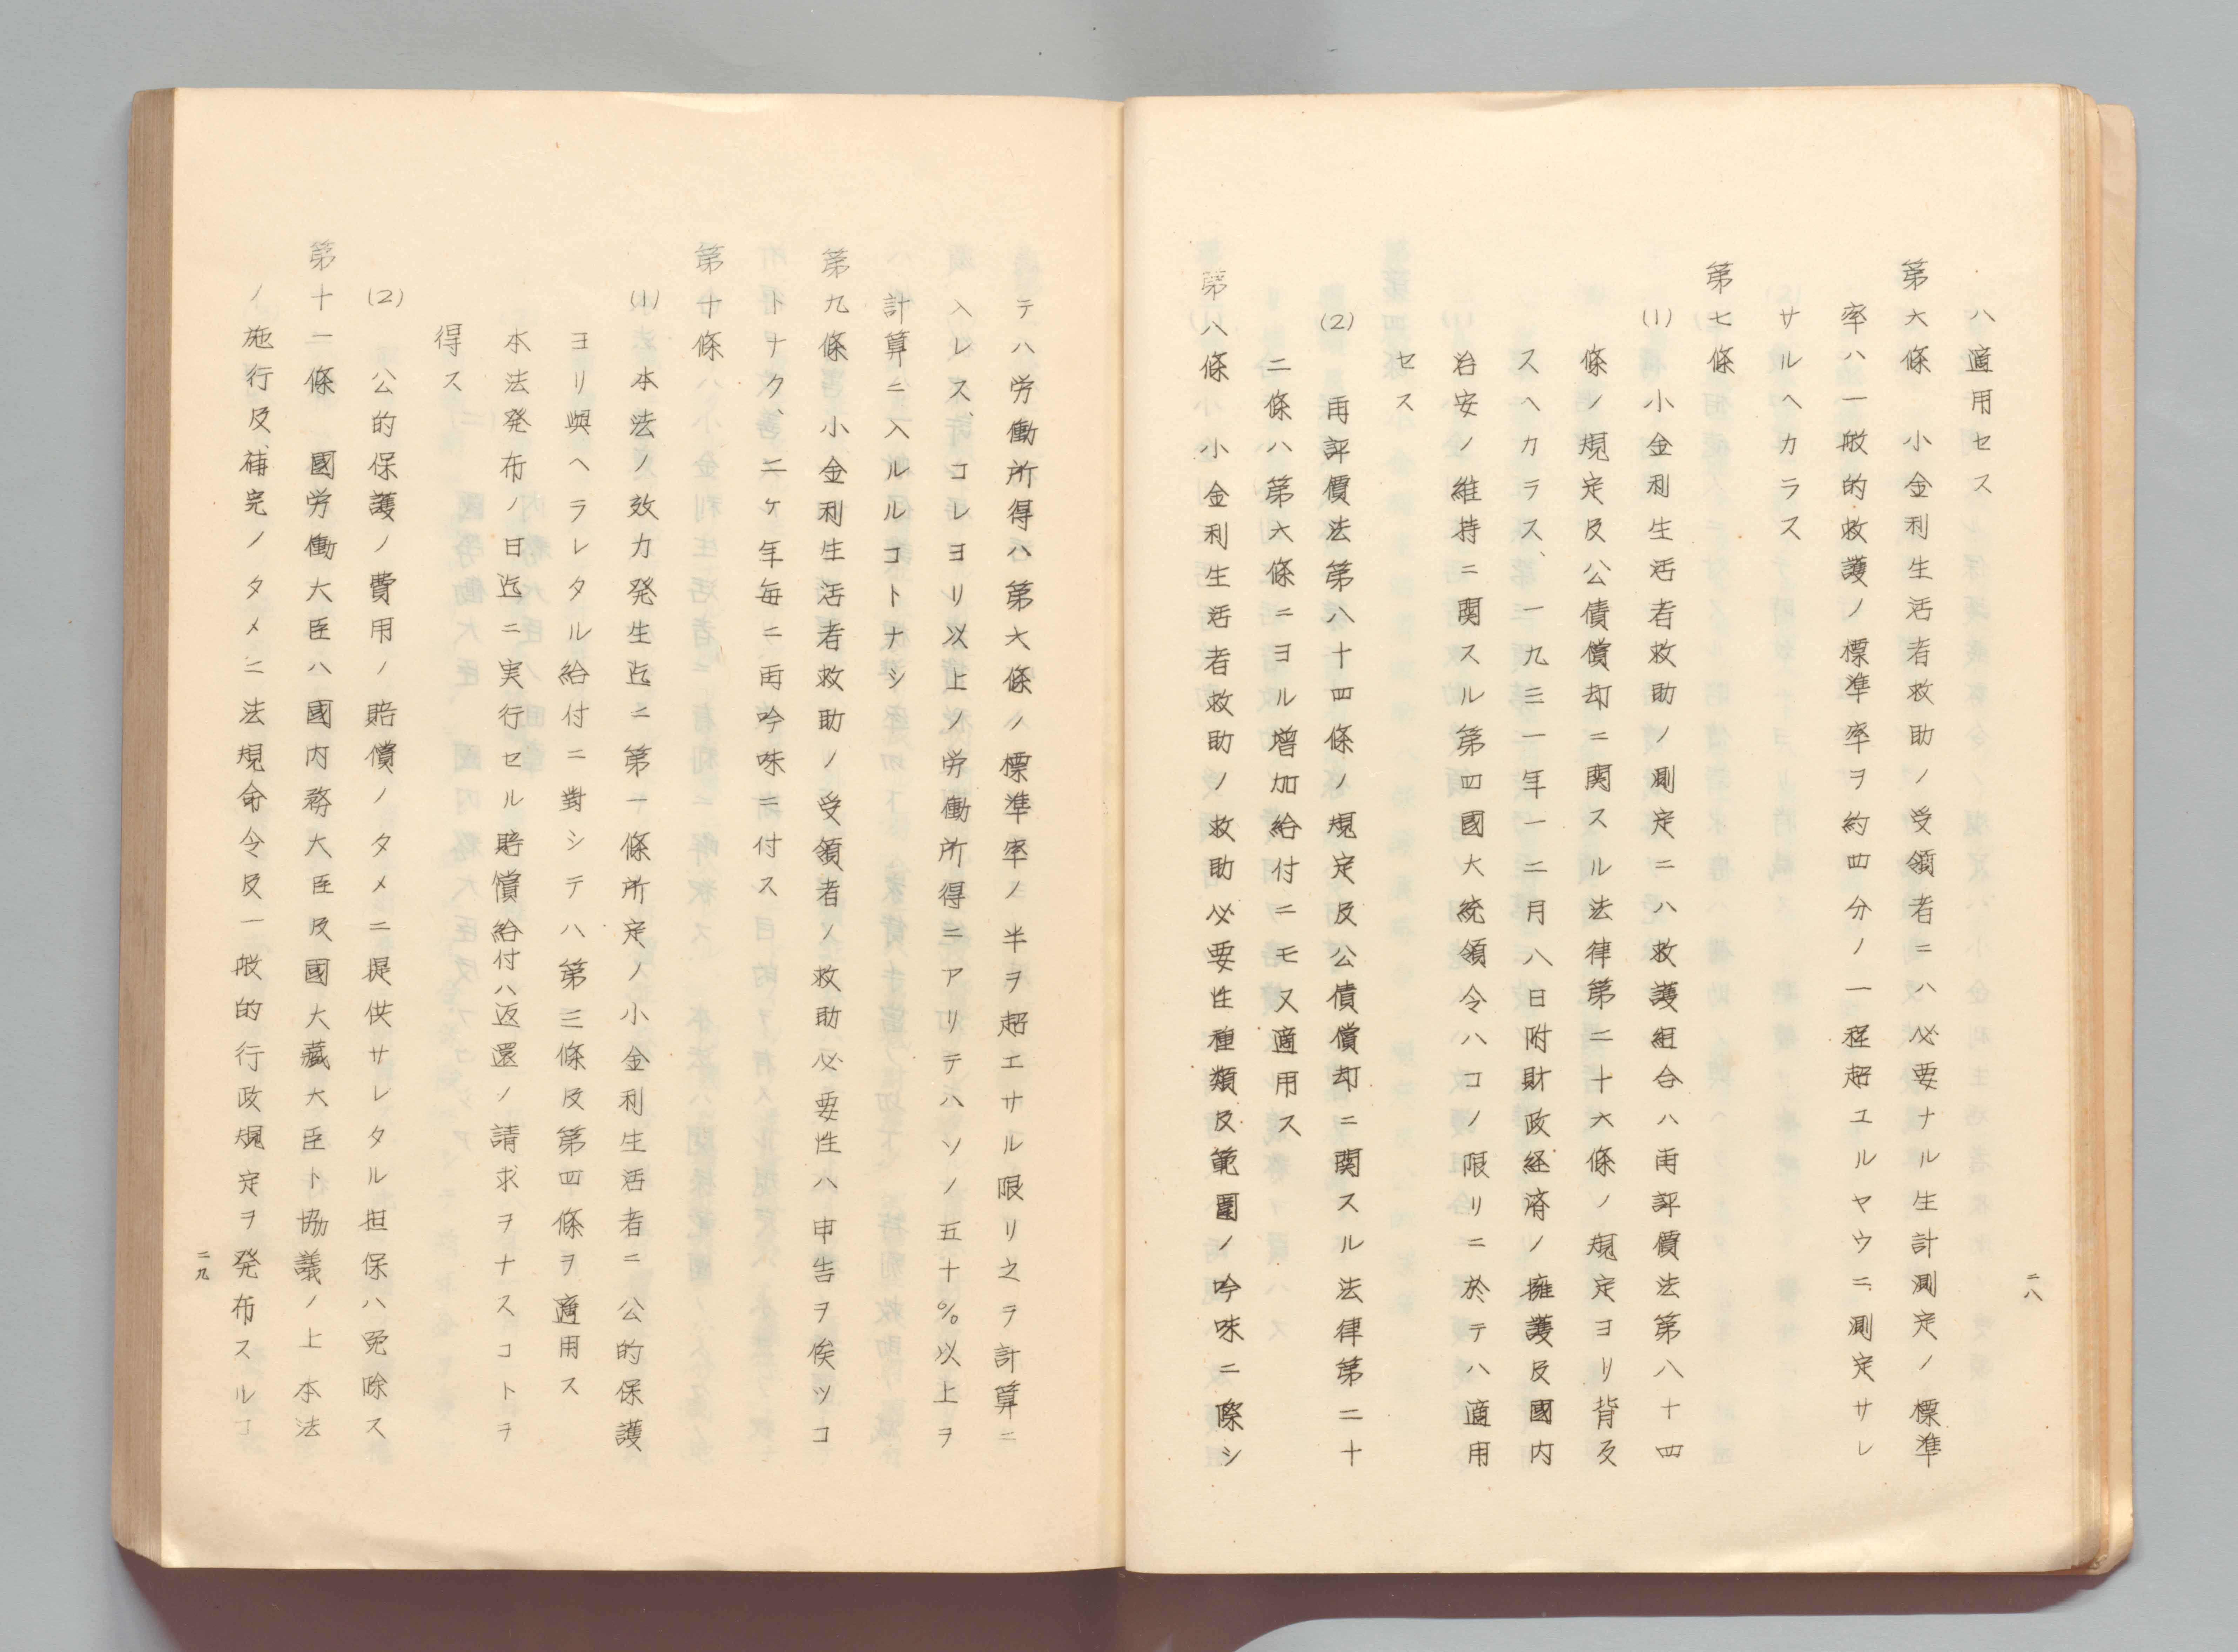 二八
ハ適用セス
第六條　小金利生活者救助ノ受領者ニハ必要ナル生計測定ノ標準
率ハ一般的救護ノ標準率ヲ約四分ノ一程超エルヤウニ測定サレ
サルヘカラス
第七條
(1)　小金利生活者救助ノ測定ニハ救護組合ハ再評價法第八十四
條ノ規定及公債償却ニ関スル法律第二十六條ノ規定ヨリ背反
スヘカラス、一九三一年一二月八日附財政経済ノ擁護及國内
治安ノ維持ニ関スル第四國大統領令ハコノ限リニ於テハ適用
セス
(2)　再評價法第八十四條ノ規定及公債償却ニ関スル法律第二十
二條ハ第六條ニヨル増加給付ニモ又適用ス
第八條　小金利生活者救助ノ救助必要性種類及範圍ノ吟味ニ際シ
テハ労働所得ハ第六條ノ標準率ノ半ヲ超エサル限リ之ヲ計算ニ
入レス、コレヨリ以上ノ労働所得ニアリテハソノ五十％以上ヲ
計算ニ入ルルコトナシ
第九條　小金利生活者救助ノ受領者ノ救助必要性ハ申告ヲ俟ツコ
トナク、二ヶ年毎ニ再吟味ニ付ス
第十條
(1)　本法ノ效力発生迄ニ第一條所定ノ小金利生活者ニ公的保護
ヨリ與ヘラレタル給付ニ對シテハ第三條及第四條ヲ適用ス
本法発布ノ日迄ニ実行セル賠償給付ハ返還ノ請求ヲナスコトヲ
得ス
(2)　公的保護ノ費用ノ賠償ノタメニ提供サレタル担保ハ免除ス
第十一條　國労働大臣ハ國内務大臣及國大藏大臣ト協議ノ上本法
ノ施行及補完ノタメニ法規命令及一般的行政規定ヲ発布スルコ
二九